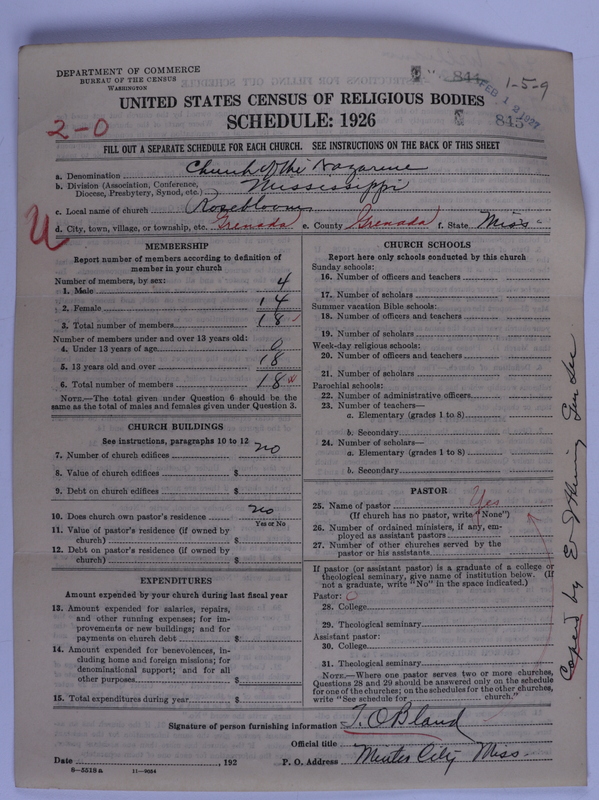 DEPARTMENT OF COMMERCE
BUREAU OF THE CENSUS
WASHINGTON
844
FEB 12 1927
1-5-9
845
UNITED STATES CENSUS OF RELIGIOUS BODIES
SCHEDULE: 1926
2-0
FILL OUT A SEPARATE SCHEDULE FOR EACH CHURCH. SEE INSTRUCTIONS ON THE BACK OF THIS SHEET
a. Denomination Church of the Nazarene
b. Division (Association, Conference, Diocese, Presbytery, Synod, etc.) Mississippi
c. Local name of church Rosebloom
d. City, town, village, or township, etc. Grenada e. County Grenada f. State Miss
U
MEMBERSHIP
Report number of members according to definition of
member in your church
Number of members, by sex:
1. Male 4
2. Female 14
3. Total number of members 18
Number of members under and over 13 years old:
4. Under 13 years of age 0
5. 13 years old and over 18
6. Total number of members 18
NOTE.—The total given under Question 6 should be the
same as the total of males and females given under Question 3.
CHURCH BUILDINGS
See instructions, paragraphs 10 to 12
7. Number of church edifices no
8. Value of church edifices $
9. Debt on church edifices $
10. Does church own pastor's residence no
Yes or No
11. Value of pastor's residence (if owned by
church) $
12. Debt on pastor's residence (if owned by
church) $
EXPENDITURES
Amount expended by your church during last fiscal year
13. Amount expended for salaries, repairs,
and other running expenses; for im-
provements or new buildings; and for
payments on church debt $
14. Amount expended for benevolences, in-
cluding home and foreign missions; for
denominational support; and for all
other purposes $
15. Total expenditures during year $
CHURCH SCHOOLS
Report here only schools conducted by this church
Sunday schools:
16. Number of officers and teachers
17. Number of scholars
Summer vacation Bible schools:
18. Number of officers and teachers
19. Number of scholars
Week-day religious schools:
20. Number of officers and teachers
21. Number of scholars
Parochial schools:
22. Number of administrative officers
23. Number of teachers—
a. Elementary (grades 1 to 8)
b. Secondary
24. Number of scholars—
a. Elementary (grades 1 to 8)
b. Secondary
PASTOR
25. Name of pastor Yes
(If church has no pastor, write "None")
26. Number of ordained ministers, if any, em-
ployed as assistant pastors
27. Number of other churches served by the
pastor or his assistants
If pastor (or assistant pastor) is a graduate of a college or
theological seminary, give name of institution below. (If
not a graduate, write "No" in the space indicated.)
Pastor:
28. College
29. Theological seminary
Assistant pastor:
30. College
31. Theological seminary
NOTE.—Where one pastor serves two or more churches,
Questions 28 and 29 should be answered only on the schedule
for one of the churches; on the schedules for the other churches,
write "See schedule for church."
Signature of person furnishing information T. O Bland
Official title
Date , 192 P. O. Address Minter City Miss
8-5518 a 11-9064